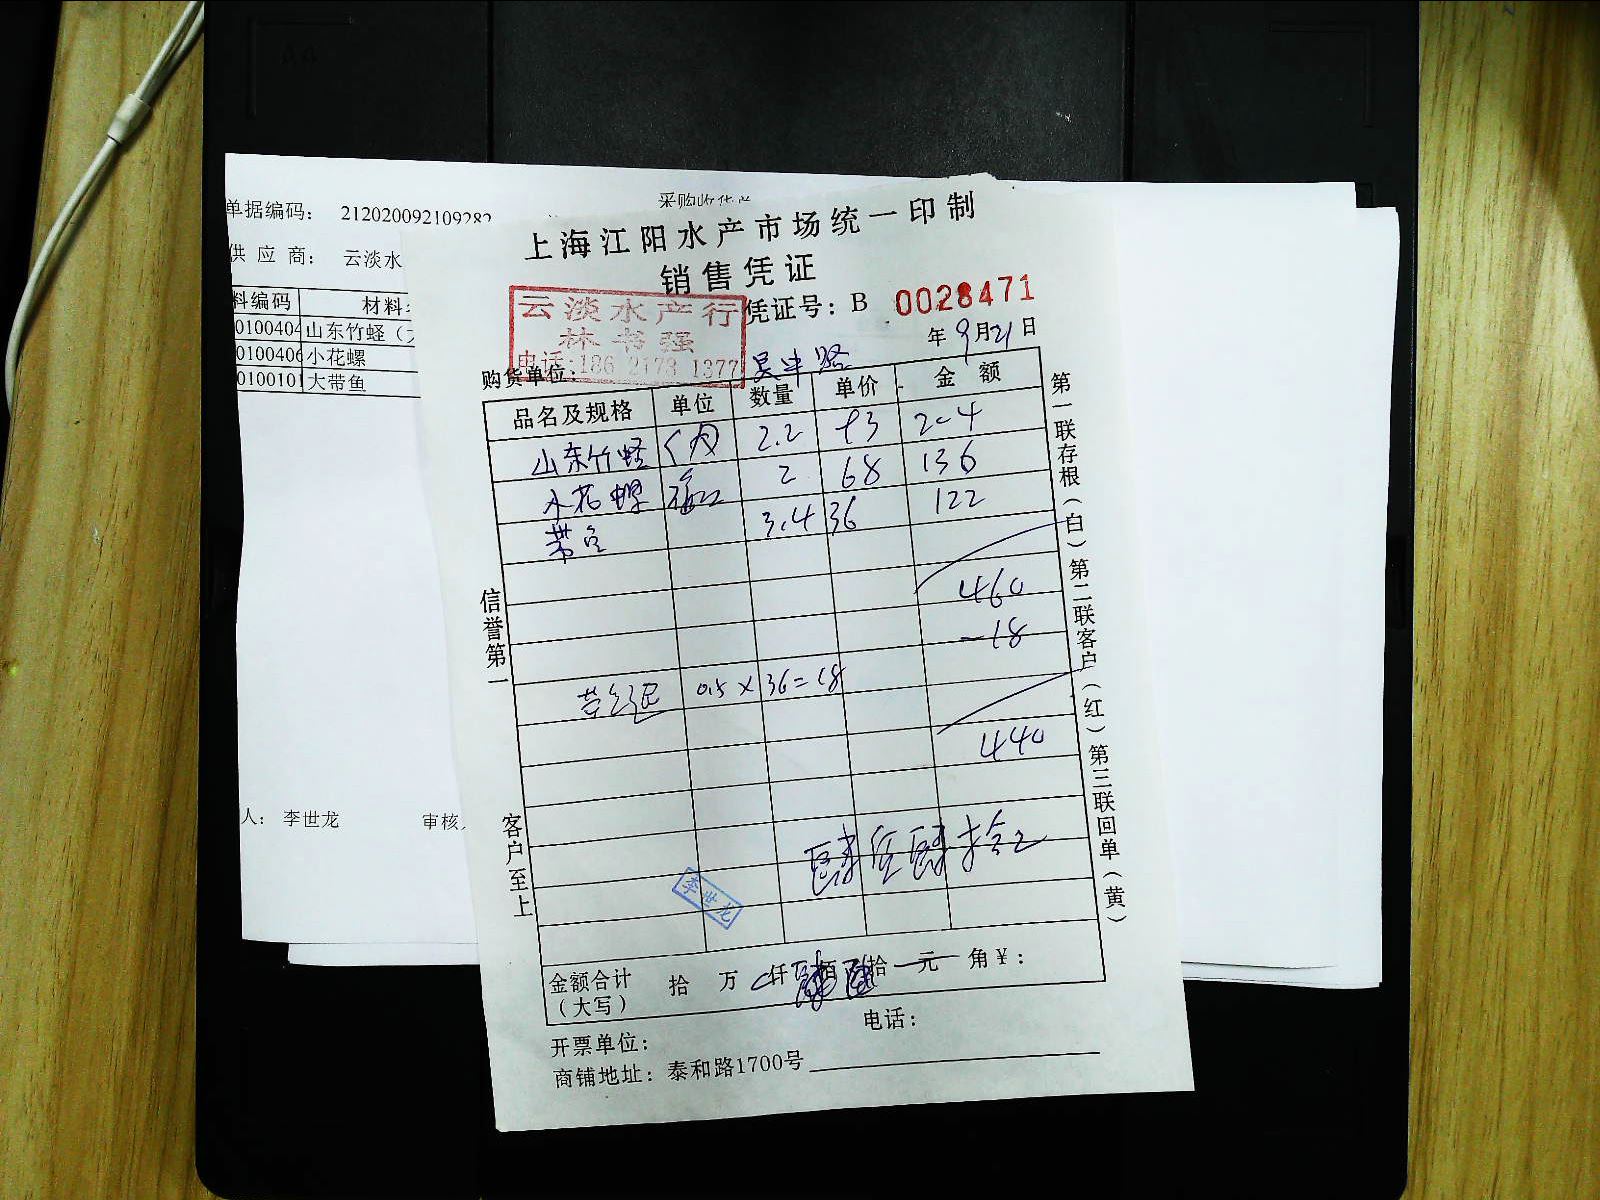 采购收货单
单据编码： 212020092109282
供 应 商： 云淡水
料编码 材料名
0100404 山东竹蛏（大
0100406 小花螺
0100101 大带鱼
人： 李世龙 审核人
上海江阳水产市场统一印制
销售凭证
凭证号：B 0028471
云淡水产行
林书强
电话:186 2173 1377
年 9月21日
购货单位： 吴中路
品名及规格 单位 数量 单价 金额
山东竹蛏 （大） 2.2 93 204
小花螺 2 68 136
带鱼 3.4 36 122
460
-18
带鱼退 0.5 × 36=18
440
肆佰肆拾元
李世龙
金额合计（大写） 拾 万 仟 佰 拾 元 角 ¥：
开票单位： 电话：
商铺地址：泰和路1700号
信誉第一
客户至上
第一联存根（白）第二联客户（红）第三联回单（黄）